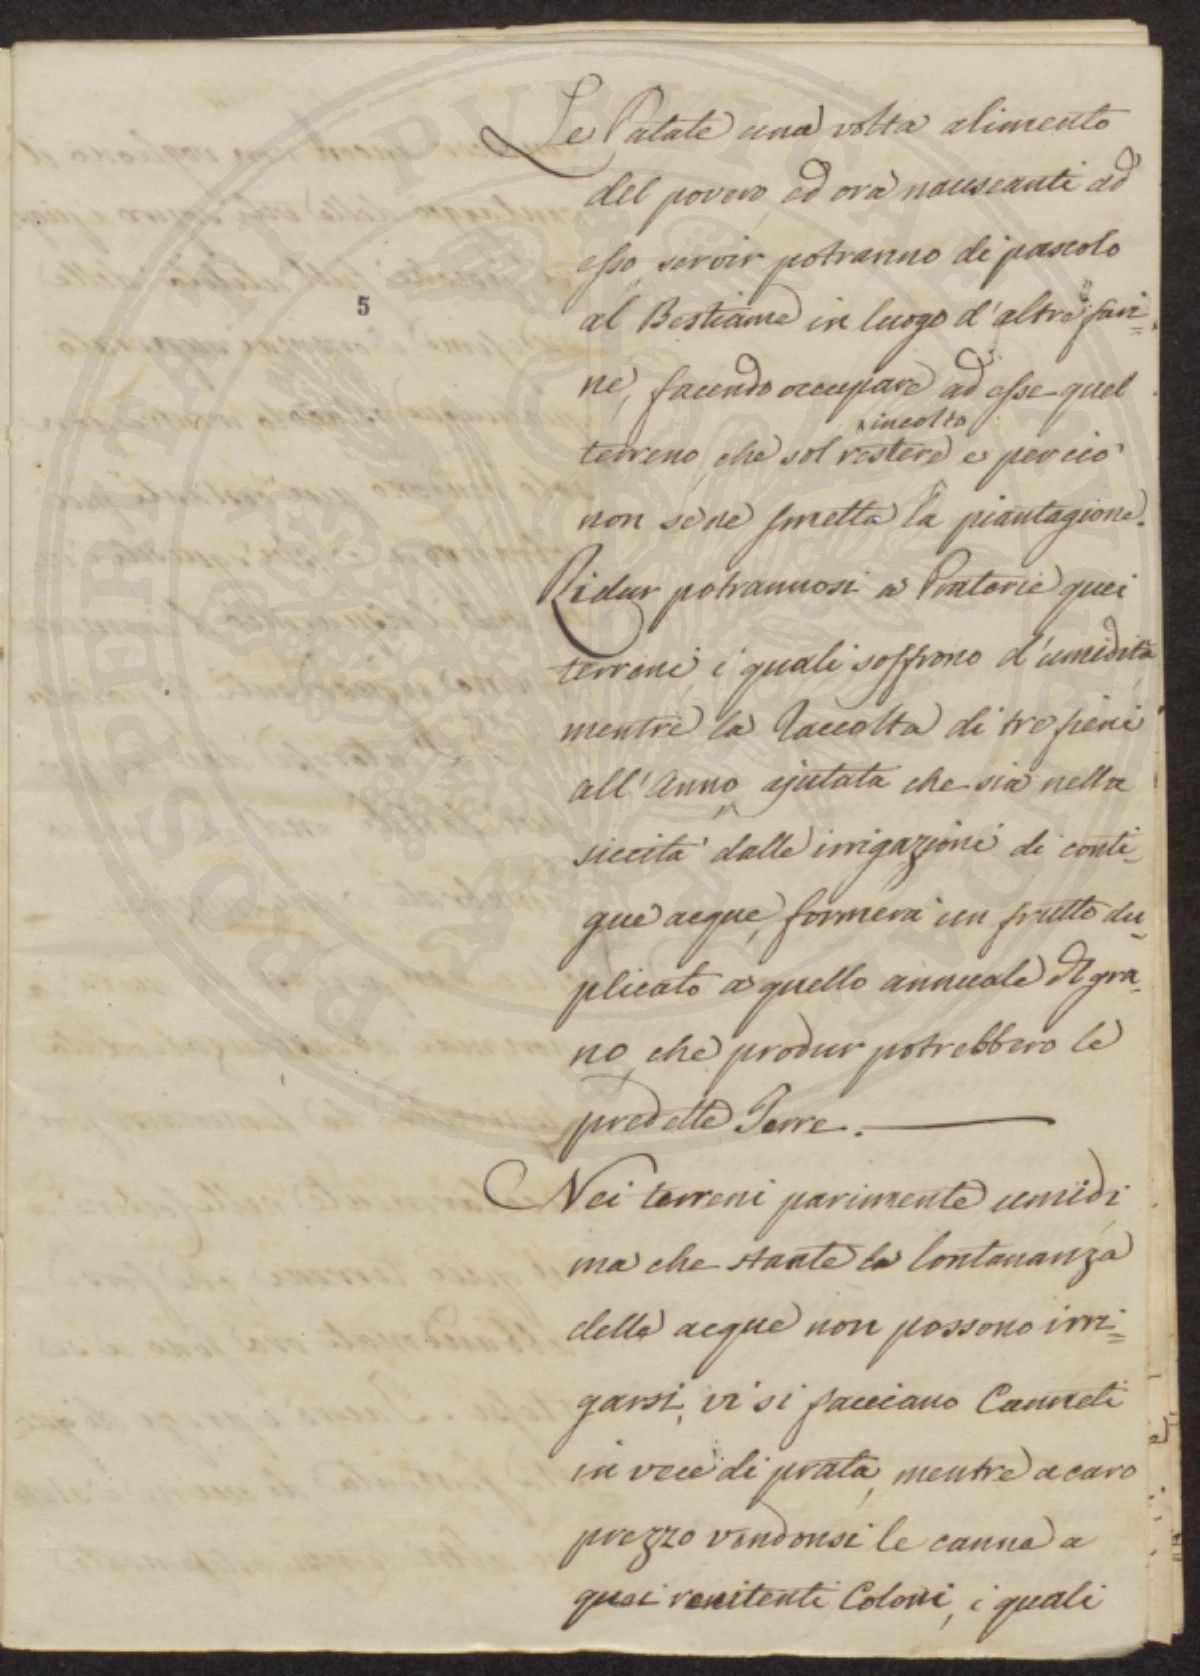 Le Patate una volta alimento
del povero, ed ora nauseanti ad
esso, servir potranno di pascolo
al Bestiame in luogo d'altre fari=
ne, facendo occupare ad esse quel
incolto
terreno, che sol restere e perciò
non se ne smetta la piantagione.
5
Ridur potrannosi a Praterie quei
terreni, i quali soffrono d'umidità
mentre la Raccolta di tre fieni
all'Anno, ajutata che sia nella
siccità dalle irrigazioni di conti=
gue acque, formerà un frutto du=
plicato a quello annuale di gra=
no, che produr potrebbero le
predette Terre.
Nei terreni parimente umidi
ma che stante la lontananza
delle acque non possono irri=
garsi, vi si facciano Canneti
in vece di prata, mentre a caro
prezzo vendonsi le canne a
quei renitenti Coloni, i quali